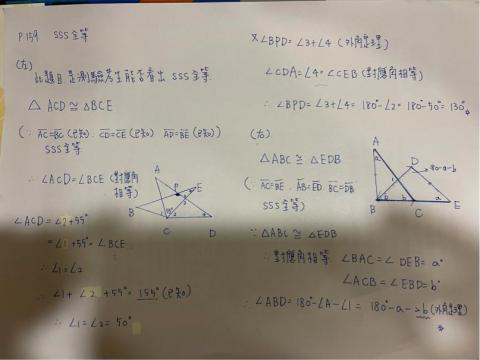 P.159 SSS全等
(左)
此題目是測驗考生能否看出 SSS全等.
△ ACD ≅ △BCE
(∵ AC=BC (已知). CD=CE (已知) AD=BE (已知))
SSS全等
∴ ∠ACD=∠BCE (對應角相等)
∠ACD = ∠2+55°
= ∠1+55° = ∠BCE
∴ ∠1=∠2
∴ ∠1+ ∠2 +55° = 155° (已知)
∴ ∠1=∠2 = 50°
A
P
E
B
C
D
又∠BPD = ∠3+∠4 (外角定理)
∠CDA = ∠4 = ∠CEB (對應角相等)
∴ ∠BPD = ∠3+∠4 = 180°-∠2 = 180°-50° = 130°
(右)
△ABC ≅ △EDB
(∵ AC=BE. AB=ED. BC=DB
SSS全等)
∵ △ABC ≅ △EDB
∴ 對應角相等 ∠BAC = ∠DEB = a°
∠ACB = ∠EBD = b°
∴ ∠ABD = 180°-∠A-∠1 = 180°-a-2b (外角定理)
A
a
D
180-a-b
B
b
b
C
a
E